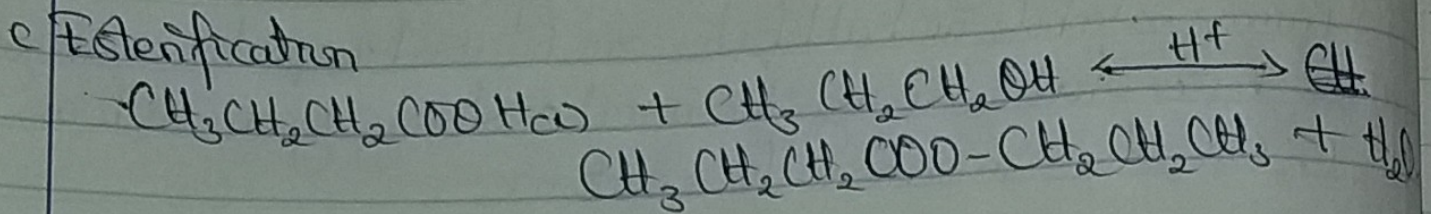 c Esterification
CH₃CH₂CH₂COOH(l) + CH₃CH₂CH₂OH ⟷ H⁺ CH
CH₃CH₂CH₂COO-CH₂CH₂CH₃ + H₂O